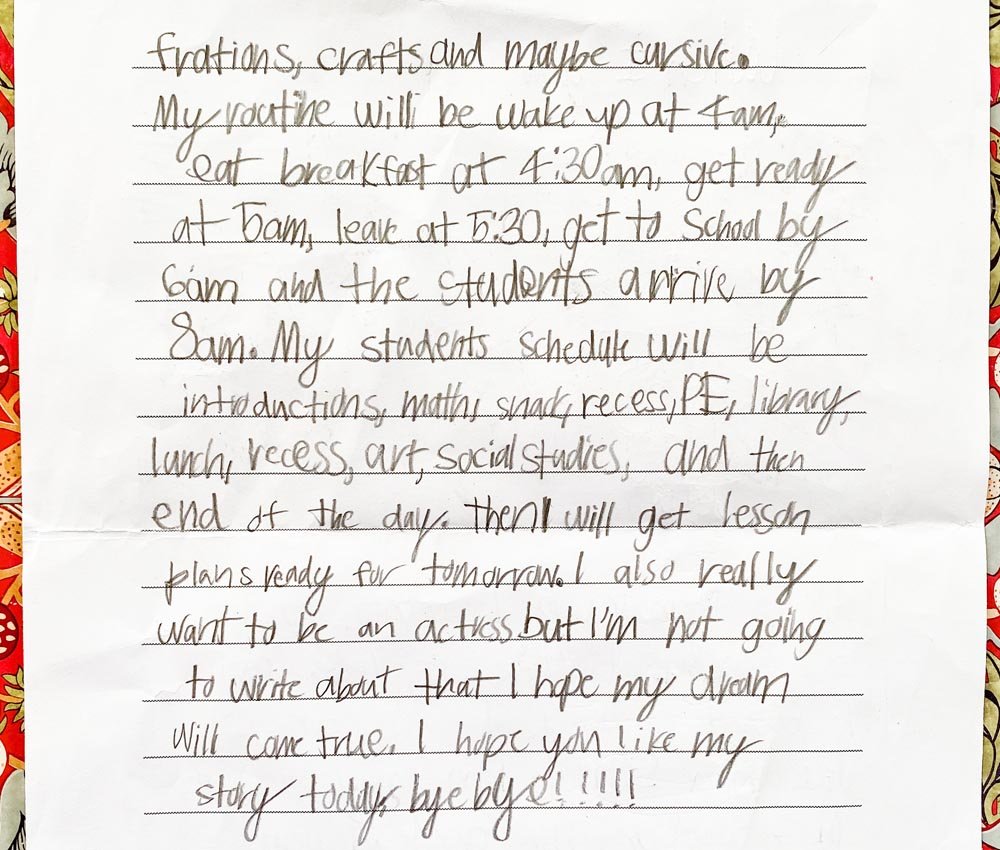 frations, crafts and maybe cursive.
My routine will be wake up at 4am,
eat breakfast at 4:30am, get ready
at 5am, leave at 5:30, get to School by
6am and the students arrive by
8am. My students schedule will be
introductions, math, snack, recess, PE, library,
lunch, recess, art, social studies, and then
end of the day. Then I will get lesson
plans ready for tomorrow. I also really
want to be an actress but I'm not going
to write about that I hope my dream
will come true. I hope you like my
story today, bye bye!!!!!